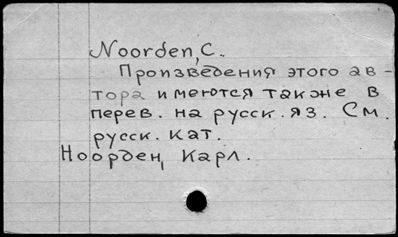 Noorden, C.
Произведения этого ав-
тора имеются также в
перев. на русск. яз. См.
русск. кат.
Ноорден, Карл.